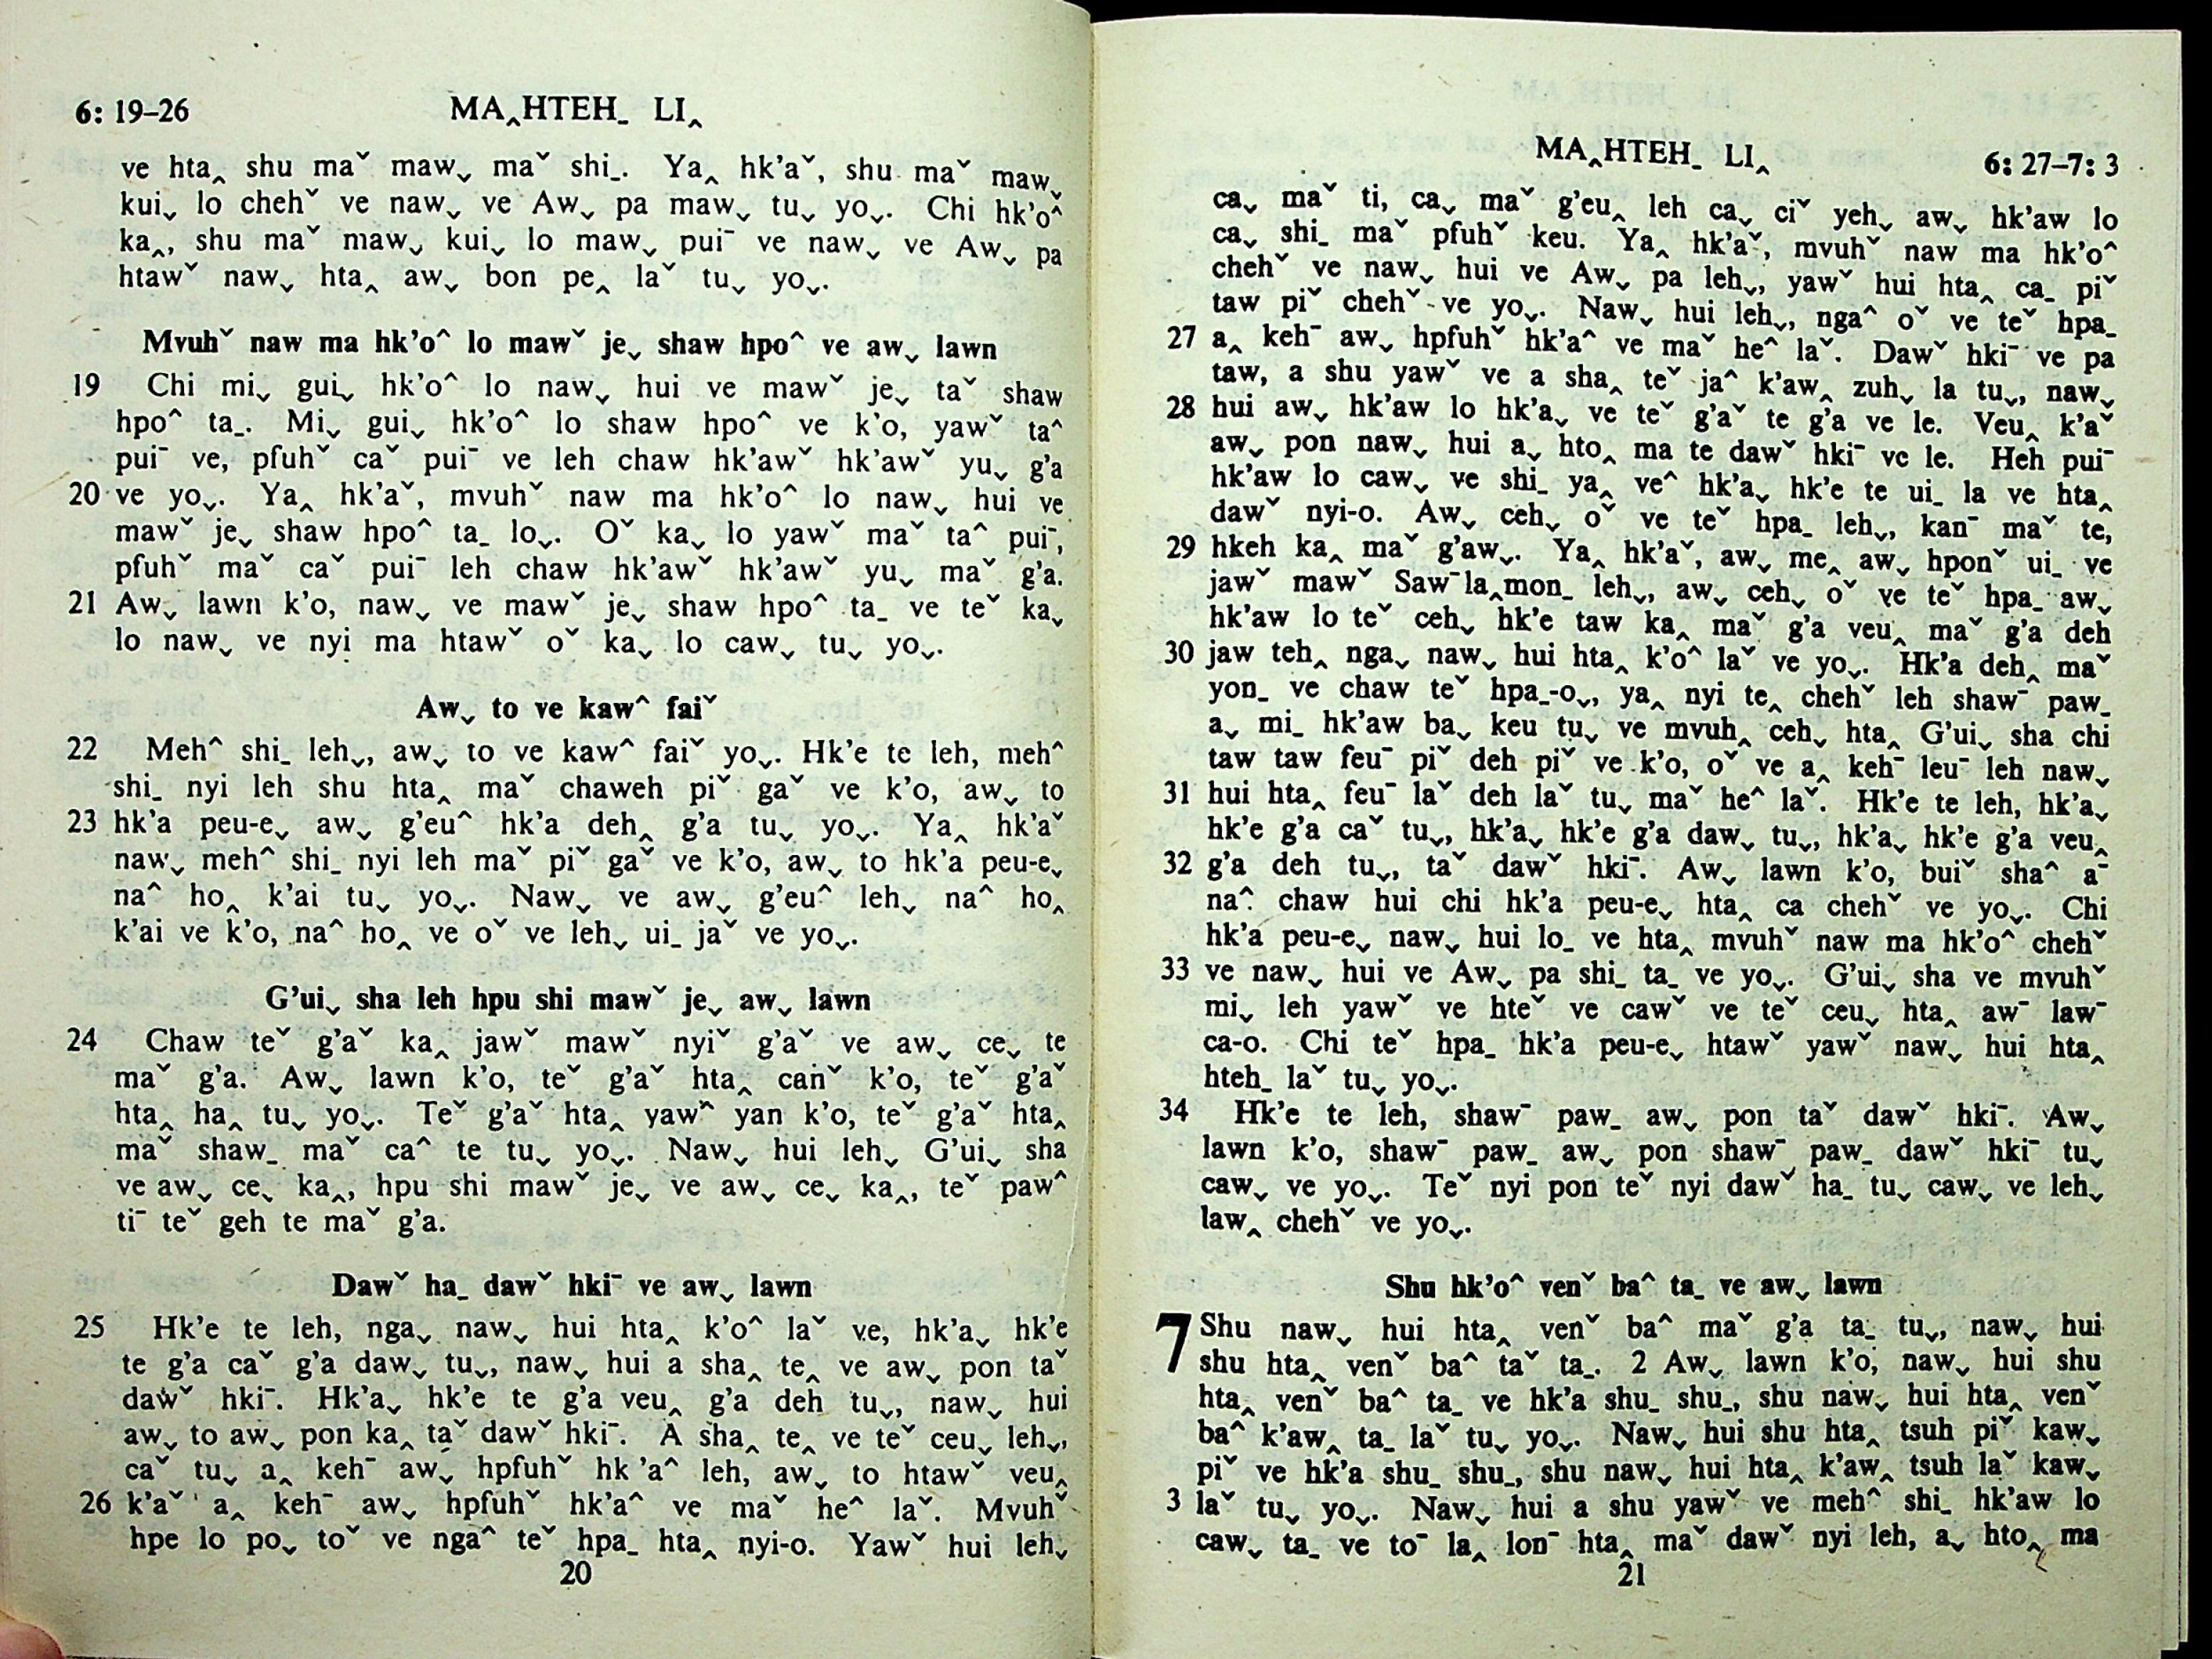 6: 19–26 MA‸HTEH˗ LI‸
ve hta‸ shu maˇ maw˯ maˇ shi˗. Ya‸ hk'aˇ, shu maˇ maw˯
kui˯ lo chehˇ ve naw˯ ve Aw˯ pa maw˯ tu˯ yo˯. Chi hk'o^
ka‸, shu maˇ maw˯ kui˯ lo maw˯ puiˉ ve naw˯ ve Aw˯ pa
htawˇ naw˯ hta‸ aw˯ bon pe‸ laˇ tu˯ yo˯.
Mvuhˇ naw ma hk'o^ lo mawˇ je˯ shaw hpo^ ve aw˯ lawn
19 Chi mi˯ gui˯ hk'o^ lo naw˯ hui ve mawˇ je˯ taˇ shaw
hpo^ ta˗. Mi˯ gui˯ hk'o^ lo shaw hpo^ ve k'o, yawˇ ta^
puiˉ ve, pfuhˇ caˇ puiˉ ve leh chaw hk'awˇ hk'awˇ yu˯ g'a
20 ve yo˯. Ya‸ hk'aˇ, mvuhˇ naw ma hk'o^ lo naw˯ hui ve
mawˇ je˯ shaw hpo^ ta˗ lo˯. Oˇ ka˯ lo yawˇ maˇ ta^ puiˉ,
pfuhˇ maˇ caˇ puiˉ leh chaw hk'awˇ hk'awˇ yu˯ maˇ g'a.
21 Aw˯ lawn k'o, naw˯ ve mawˇ je˯ shaw hpo^ ta˗ ve teˇ ka˯
lo naw˯ ve nyi ma htawˇ oˇ ka˯ lo caw˯ tu˯ yo˯.
Aw˯ to ve kaw^ faiˇ
22 Meh^ shi˗ leh˯, aw˯ to ve kaw^ faiˇ yo˯. Hk'e te leh, meh^
shi˗ nyi leh shu hta‸ maˇ chaweh piˇ gaˇ ve k'o, aw˯ to
23 hk'a peu-e˯ aw˯ g'eu^ hk'a deh‸ g'a tu˯ yo˯. Ya‸ hk'aˇ
naw˯ meh^ shi˗ nyi leh maˇ piˇ gaˇ ve k'o, aw˯ to hk'a peu-e˯
na^ ho‸ k'ai tu˯ yo˯. Naw˯ ve aw˯ g'eu^ leh˯ na^ ho‸
k'ai ve k'o, na^ ho‸ ve oˇ ve leh˯ ui˗ jaˇ ve yo˯.
G'ui˯ sha leh hpu shi mawˇ je˯ aw˯ lawn
24 Chaw teˇ g'aˇ ka‸ jawˇ mawˇ nyiˇ g'aˇ ve aw˯ ce˯ te
maˇ g'a. Aw˯ lawn k'o, teˇ g'aˇ hta‸ canˇ k'o, teˇ g'aˇ
hta‸ ha‸ tu˯ yo˯. Teˇ g'aˇ hta‸ yaw^ yan k'o, teˇ g'aˇ hta‸
maˇ shaw˗ maˇ ca^ te tu˯ yo˯. Naw˯ hui leh˯ G'ui˯ sha
ve aw˯ ce˯ ka‸, hpu shi mawˇ je˯ ve aw˯ ce˯ ka‸, teˇ paw^
tiˉ teˇ geh te maˇ g'a.
Dawˇ ha˗ dawˇ hkiˉ ve aw˯ lawn
25 Hk'e te leh, nga˯ naw˯ hui hta‸ k'o^ laˇ ve, hk'a˯ hk'e
te g'a caˇ g'a daw˯ tu˯, naw˯ hui a sha‸ te‸ ve aw˯ pon taˇ
dawˇ hkiˉ. Hk'a˯ hk'e te g'a veu‸ g'a deh tu˯, naw˯ hui
aw˯ to aw˯ pon ka‸ taˇ dawˇ hkiˉ. A sha‸ te‸ ve teˇ ceu˯ leh˯,
caˇ tu˯ a‸ kehˉ aw˯ hpfuhˇ hk 'a^ leh, aw˯ to htawˇ veu‸
26 k'aˇ a‸ kehˉ aw˯ hpfuhˇ hk'a^ ve maˇ he^ laˇ. Mvuhˇ
hpe lo po˯ toˇ ve nga^ teˇ hpa˗ hta‸ nyi-o. Yawˇ hui leh˯
20
MA‸HTEH˗ LI‸ 6: 27–7: 3
ca˯ maˇ ti, ca˯ maˇ g'eu‸ leh ca˯ ciˇ yeh˯ aw˯ hk'aw lo
ca˯ shi˗ maˇ pfuhˇ keu. Ya‸ hk'aˇ, mvuhˇ naw ma hk'o^
chehˇ ve naw˯ hui ve Aw˯ pa leh˯, yawˇ hui hta‸ ca˗ piˇ
taw piˇ chehˇ ve yo˯. Naw˯ hui leh˯, nga^ oˇ ve teˇ hpa˗
27 a‸ kehˉ aw˯ hpfuhˇ hk'a^ ve maˇ he^ laˇ. Dawˇ hkiˉ ve pa
taw, a shu yawˇ ve a sha‸ teˇ ja^ k'aw‸ zuh˯ la tu˯, naw˯
28 hui aw˯ hk'aw lo hk'a˯ ve teˇ g'aˇ te g'a ve le. Veu‸ k'aˇ
aw˯ pon naw˯ hui a˯ hto‸ ma te dawˇ hkiˉ ve le. Heh puiˉ
hk'aw lo caw˯ ve shi˗ ya‸ ve^ hk'a˯ hk'e te ui˗ la ve hta‸
dawˇ nyi-o. Aw˯ ceh˯ oˇ ve teˇ hpa˗ leh˯, kanˉ maˇ te,
29 hkeh ka‸ maˇ g'aw˯. Ya‸ hk'aˇ, aw˯ me‸ aw˯ hponˇ ui˗ ve
jawˇ mawˇ Sawˉla‸mon˗ leh˯, aw˯ ceh˯ oˇ ve teˇ hpa˗ aw˯
hk'aw lo teˇ ceh˯ hk'e taw ka‸ maˇ g'a veu‸ maˇ g'a deh
30 jaw teh‸ nga˯ naw˯ hui hta‸ k'o^ laˇ ve yo˯. Hk'a deh‸ maˇ
yon˗ ve chaw teˇ hpa˗-o˯, ya‸ nyi te‸ chehˇ leh shawˉ paw˗
a˯ mi˗ hk'aw ba˯ keu tu˯ ve mvuh‸ ceh˯ hta‸ G'ui˯ sha chi
taw taw feuˉ piˇ deh piˇ ve k'o, oˇ ve a‸ kehˉ leuˉ leh naw˯
31 hui hta‸ feuˉ laˇ deh laˇ tu˯ maˇ he^ laˇ. Hk'e te leh, hk'a˯
hk'e g'a caˇ tu˯, hk'a˯ hk'e g'a daw˯ tu˯, hk'a˯ hk'e g'a veu‸
32 g'a deh tu˯, taˇ dawˇ hkiˉ. Aw˯ lawn k'o, buiˇ sha^ aˉ
na^ chaw hui chi hk'a peu-e˯ hta‸ ca chehˇ ve yo˯. Chi
hk'a peu-e˯ naw˯ hui lo˗ ve hta‸ mvuhˇ naw ma hk'o^ chehˇ
33 ve naw˯ hui ve Aw˯ pa shi˗ ta˗ ve yo˯. G'ui˯ sha ve mvuhˇ
mi˯ leh yawˇ ve hteˇ ve cawˇ ve teˇ ceu˯ hta‸ awˉ lawˉ
ca-o. Chi teˇ hpa˗ hk'a peu-e˯ htawˇ yawˇ naw˯ hui hta‸
hteh˗ laˇ tu˯ yo˯.
34 Hk'e te leh, shawˉ paw˗ aw˯ pon taˇ dawˇ hkiˉ. Aw˯
lawn k'o, shawˉ paw˗ aw˯ pon shawˉ paw˗ dawˇ hkiˉ tu˯
caw˯ ve yo˯. Teˇ nyi pon teˇ nyi dawˇ ha˗ tu˯ caw˯ ve leh˯
law‸ chehˇ ve yo˯.
Shu hk'o^ venˇ ba^ ta˗ ve aw˯ lawn
7 Shu naw˯ hui hta‸ venˇ ba^ maˇ g'a ta˗ tu˯, naw˯ hui
shu hta‸ venˇ ba^ taˇ ta˗. 2 Aw˯ lawn k'o, naw˯ hui shu
hta‸ venˇ ba^ ta˗ ve hk'a shu˗ shu˗, shu naw˯ hui hta‸ venˇ
ba^ k'aw‸ ta˗ laˇ tu˯ yo˯. Naw˯ hui shu hta‸ tsuh piˇ kaw˯
piˇ ve hk'a shu˗ shu˗, shu naw˯ hui hta‸ k'aw‸ tsuh laˇ kaw˯
3 laˇ tu˯ yo˯. Naw˯ hui a shu yawˇ ve meh^ shi˗ hk'aw lo
caw˯ ta˗ ve toˉ la‸ lonˉ hta‸ maˇ dawˇ nyi leh, a˯ hto‸ ma
21